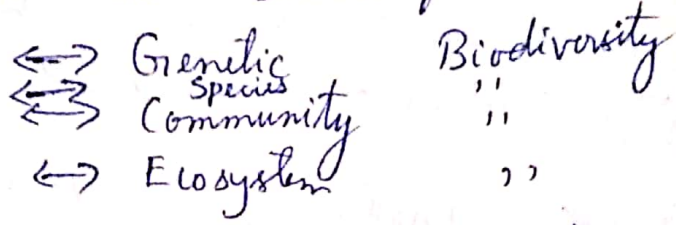 ↔ Genetic Biodiversity
↔ Species ,,
↔ Community ,,
↔ Ecosystem ,,